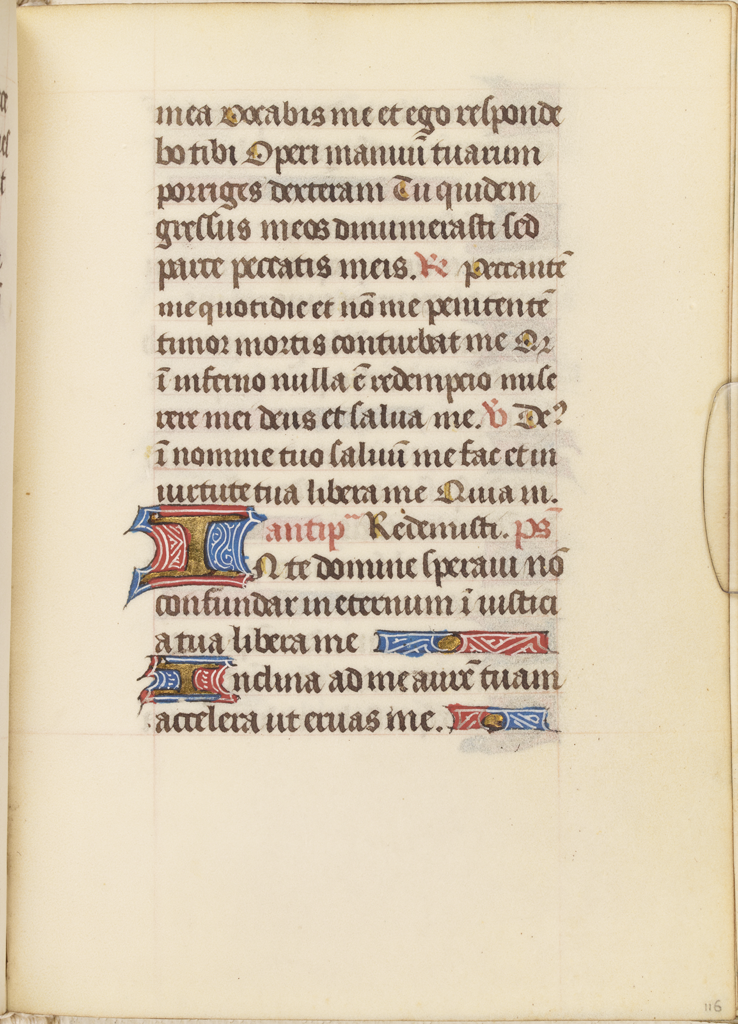 mea vocabis me et ego responde
bo tibi Operi manuū tuarum
porriges dexteram Tu quidem
gressus meos dinumerasti sed
parce peccatis meis. R̷ Peccantē
me quotidie et nō me penitentē
timor mortis conturbat me Qr
ī inferno nulla ē redempcio mise
rere mei deus et salua me. V̷ De9
ī nomine tuo saluū me fac et in
uirtute tua libera me Quia in.
antip̄ Redemisti. ps̄
IN te domine speraui nō
confundar in eternum ī iustici
a tua libera me
Inclina ad me aurē tuam
accelera ut eruas me.
116